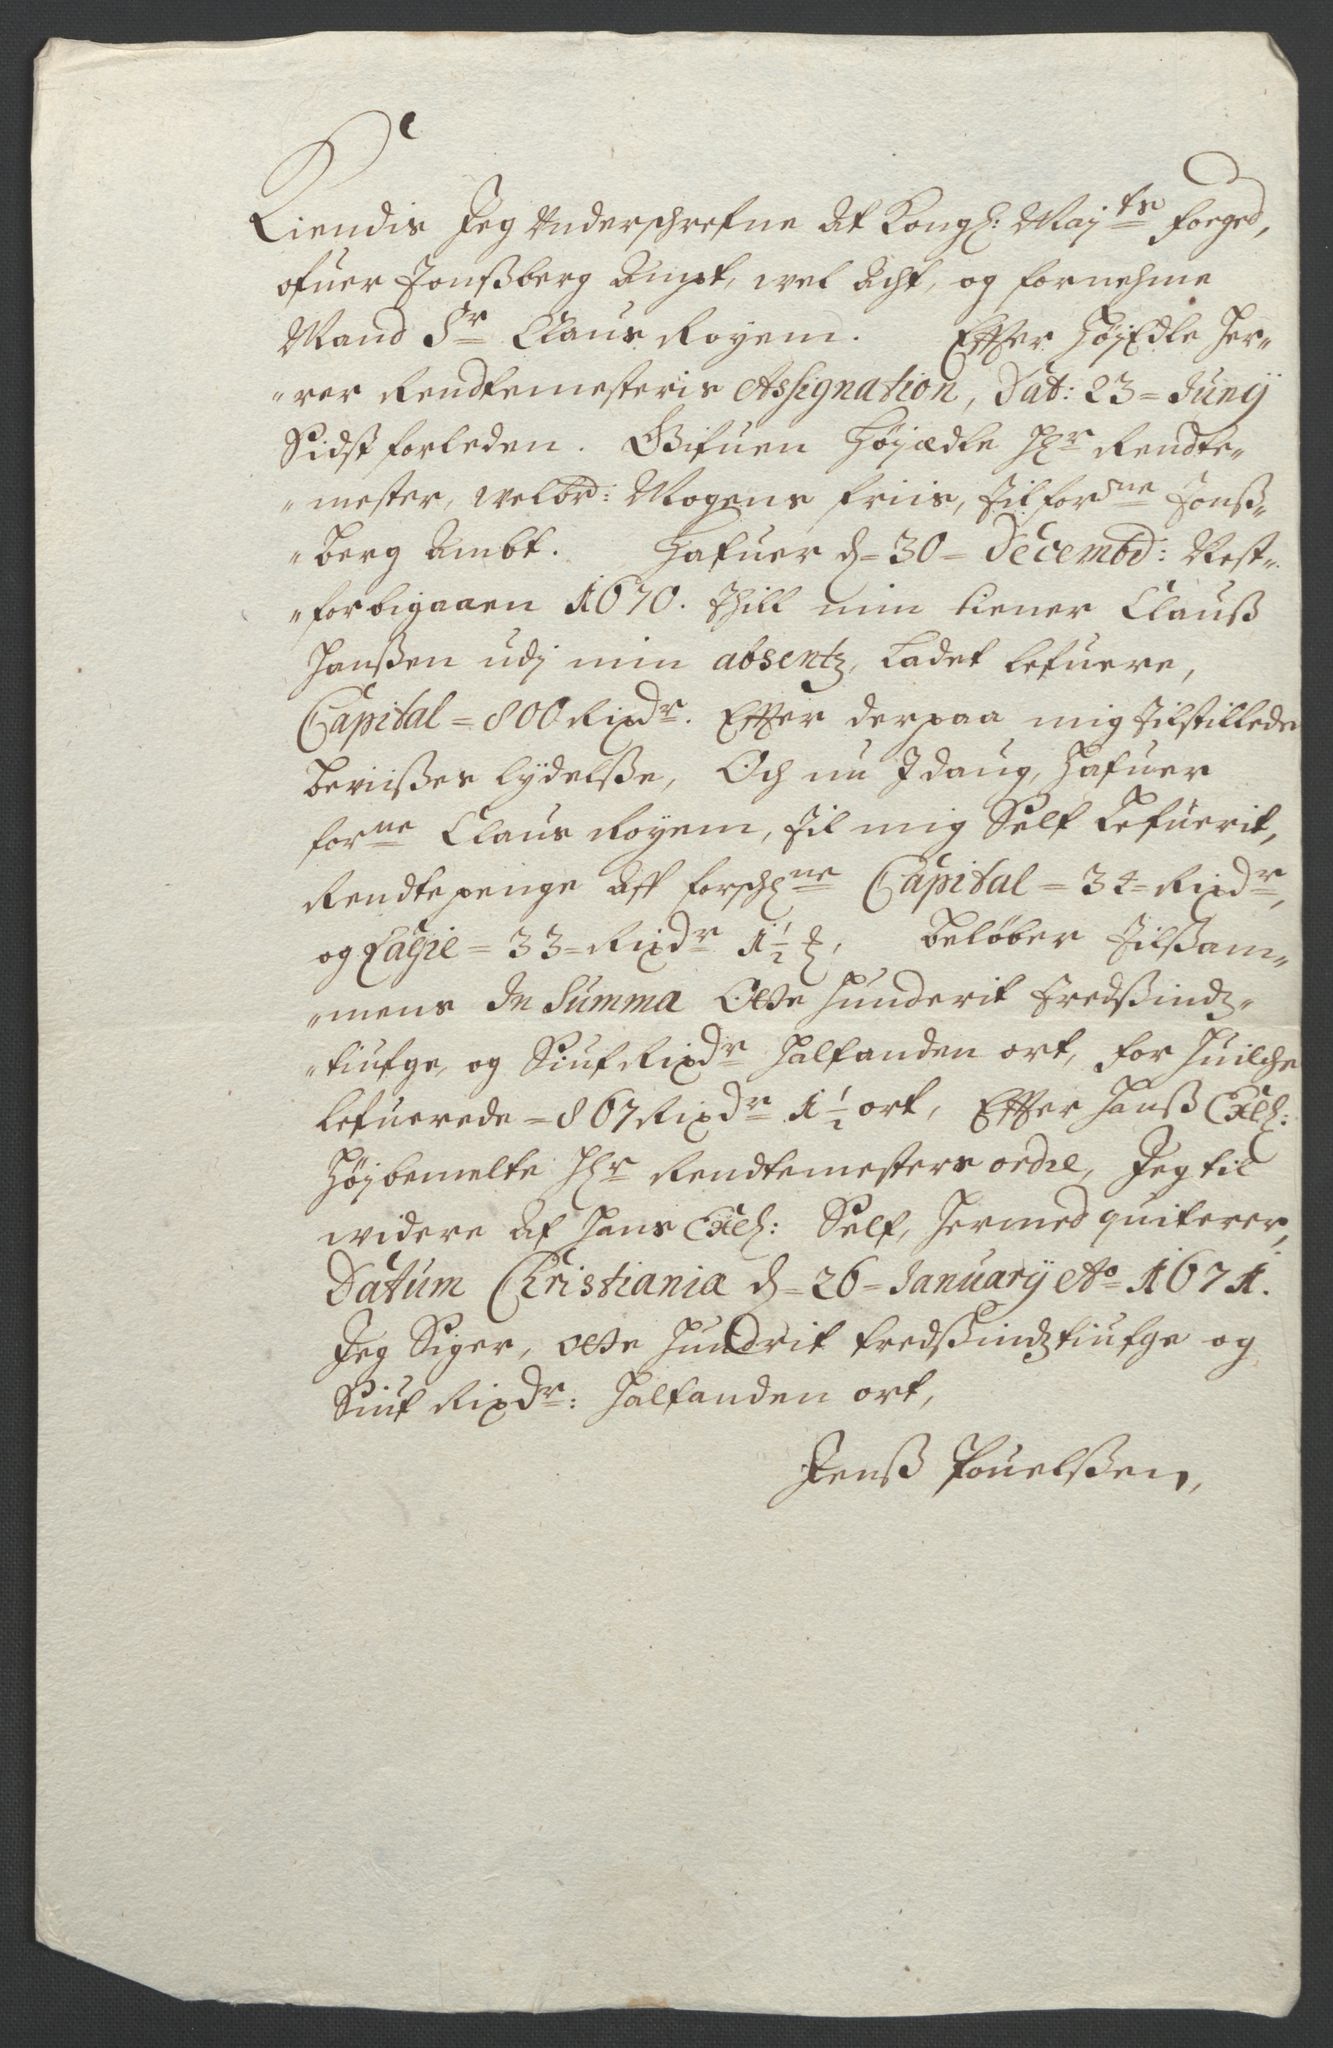 Kiendis Jeg Underschrefne At Kongl: Maj:ts foeged,
ofuer Jonßberg Ampt, wel Acht, og fornehme
Mand Sr Claus Royem. Effter HöjEdle Her-
-rer Rendtemesteris Assignation, Dat: 23 = Junÿ
Sidst forleden. Gifuen Höjædle Hr Rendte-
-mester, welbr: Mogens friis, til forne Jonß-
-berg Ambt. Hafuer d = 30 = Decembr: Nest-
-forbigaaen 1670. Thill min tiener Clauß
Hanßen udj min absentz, Ladet lefuere,
Capital = 800 Rixdr. Effter derpaa mig tilstillede
beviißes lÿdelße, Och nu Jdaug, Hafuer
forne Claus Royem, til mig Self Lefuerit,
Rendtepenge Aff forschne Capital = 34 = Rixdr,
og Lagie = 33 = Rixdr 1½ ₰, beløber tilßam-
-mens In Summa Otte Hunderit tredßindz-
-tiufge, og Siuf Rixdr Halfanden ort, for Huilche
lefuerede = 867 Rixdr 1½ ort, Effter Hanß Exel:
Höjbemelte Hr Rendtemesters ordre, Jeg til
widere Af Hans Exel: Self, Hermed quiterer,
Datum Christiania d = 26 = Januarÿ Ao 1671.
Jeg Siger, otte Hundrit tredßindztiufge og
Siuf Rixdr: Halfanden ort,
Jenß Pouelßen,